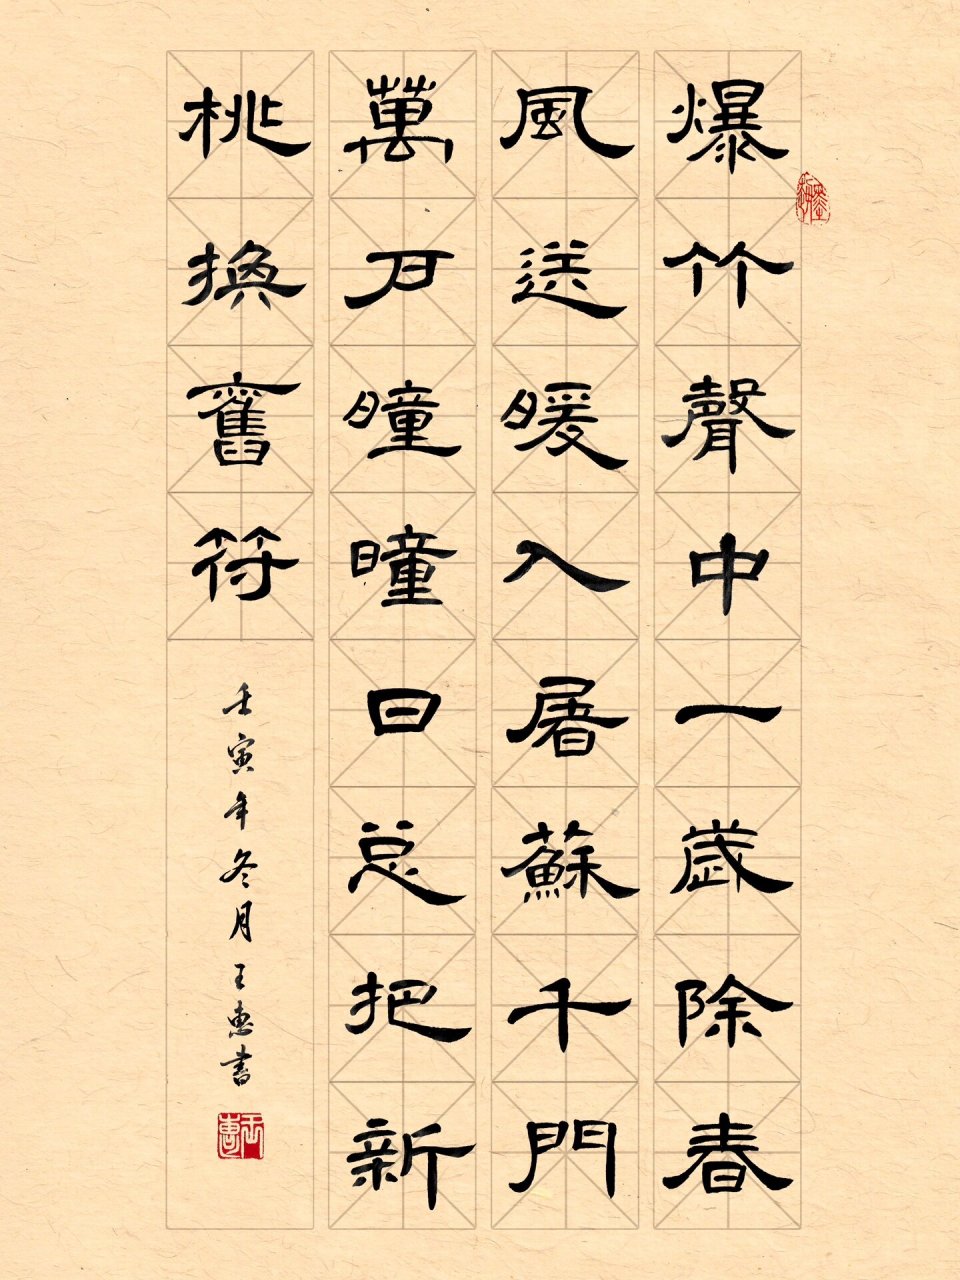 爆竹聲中一歲除春
風送暖入屠蘇千門
萬戶曈曈日总把新
桃換舊符
壬寅年冬月王惠書
王惠